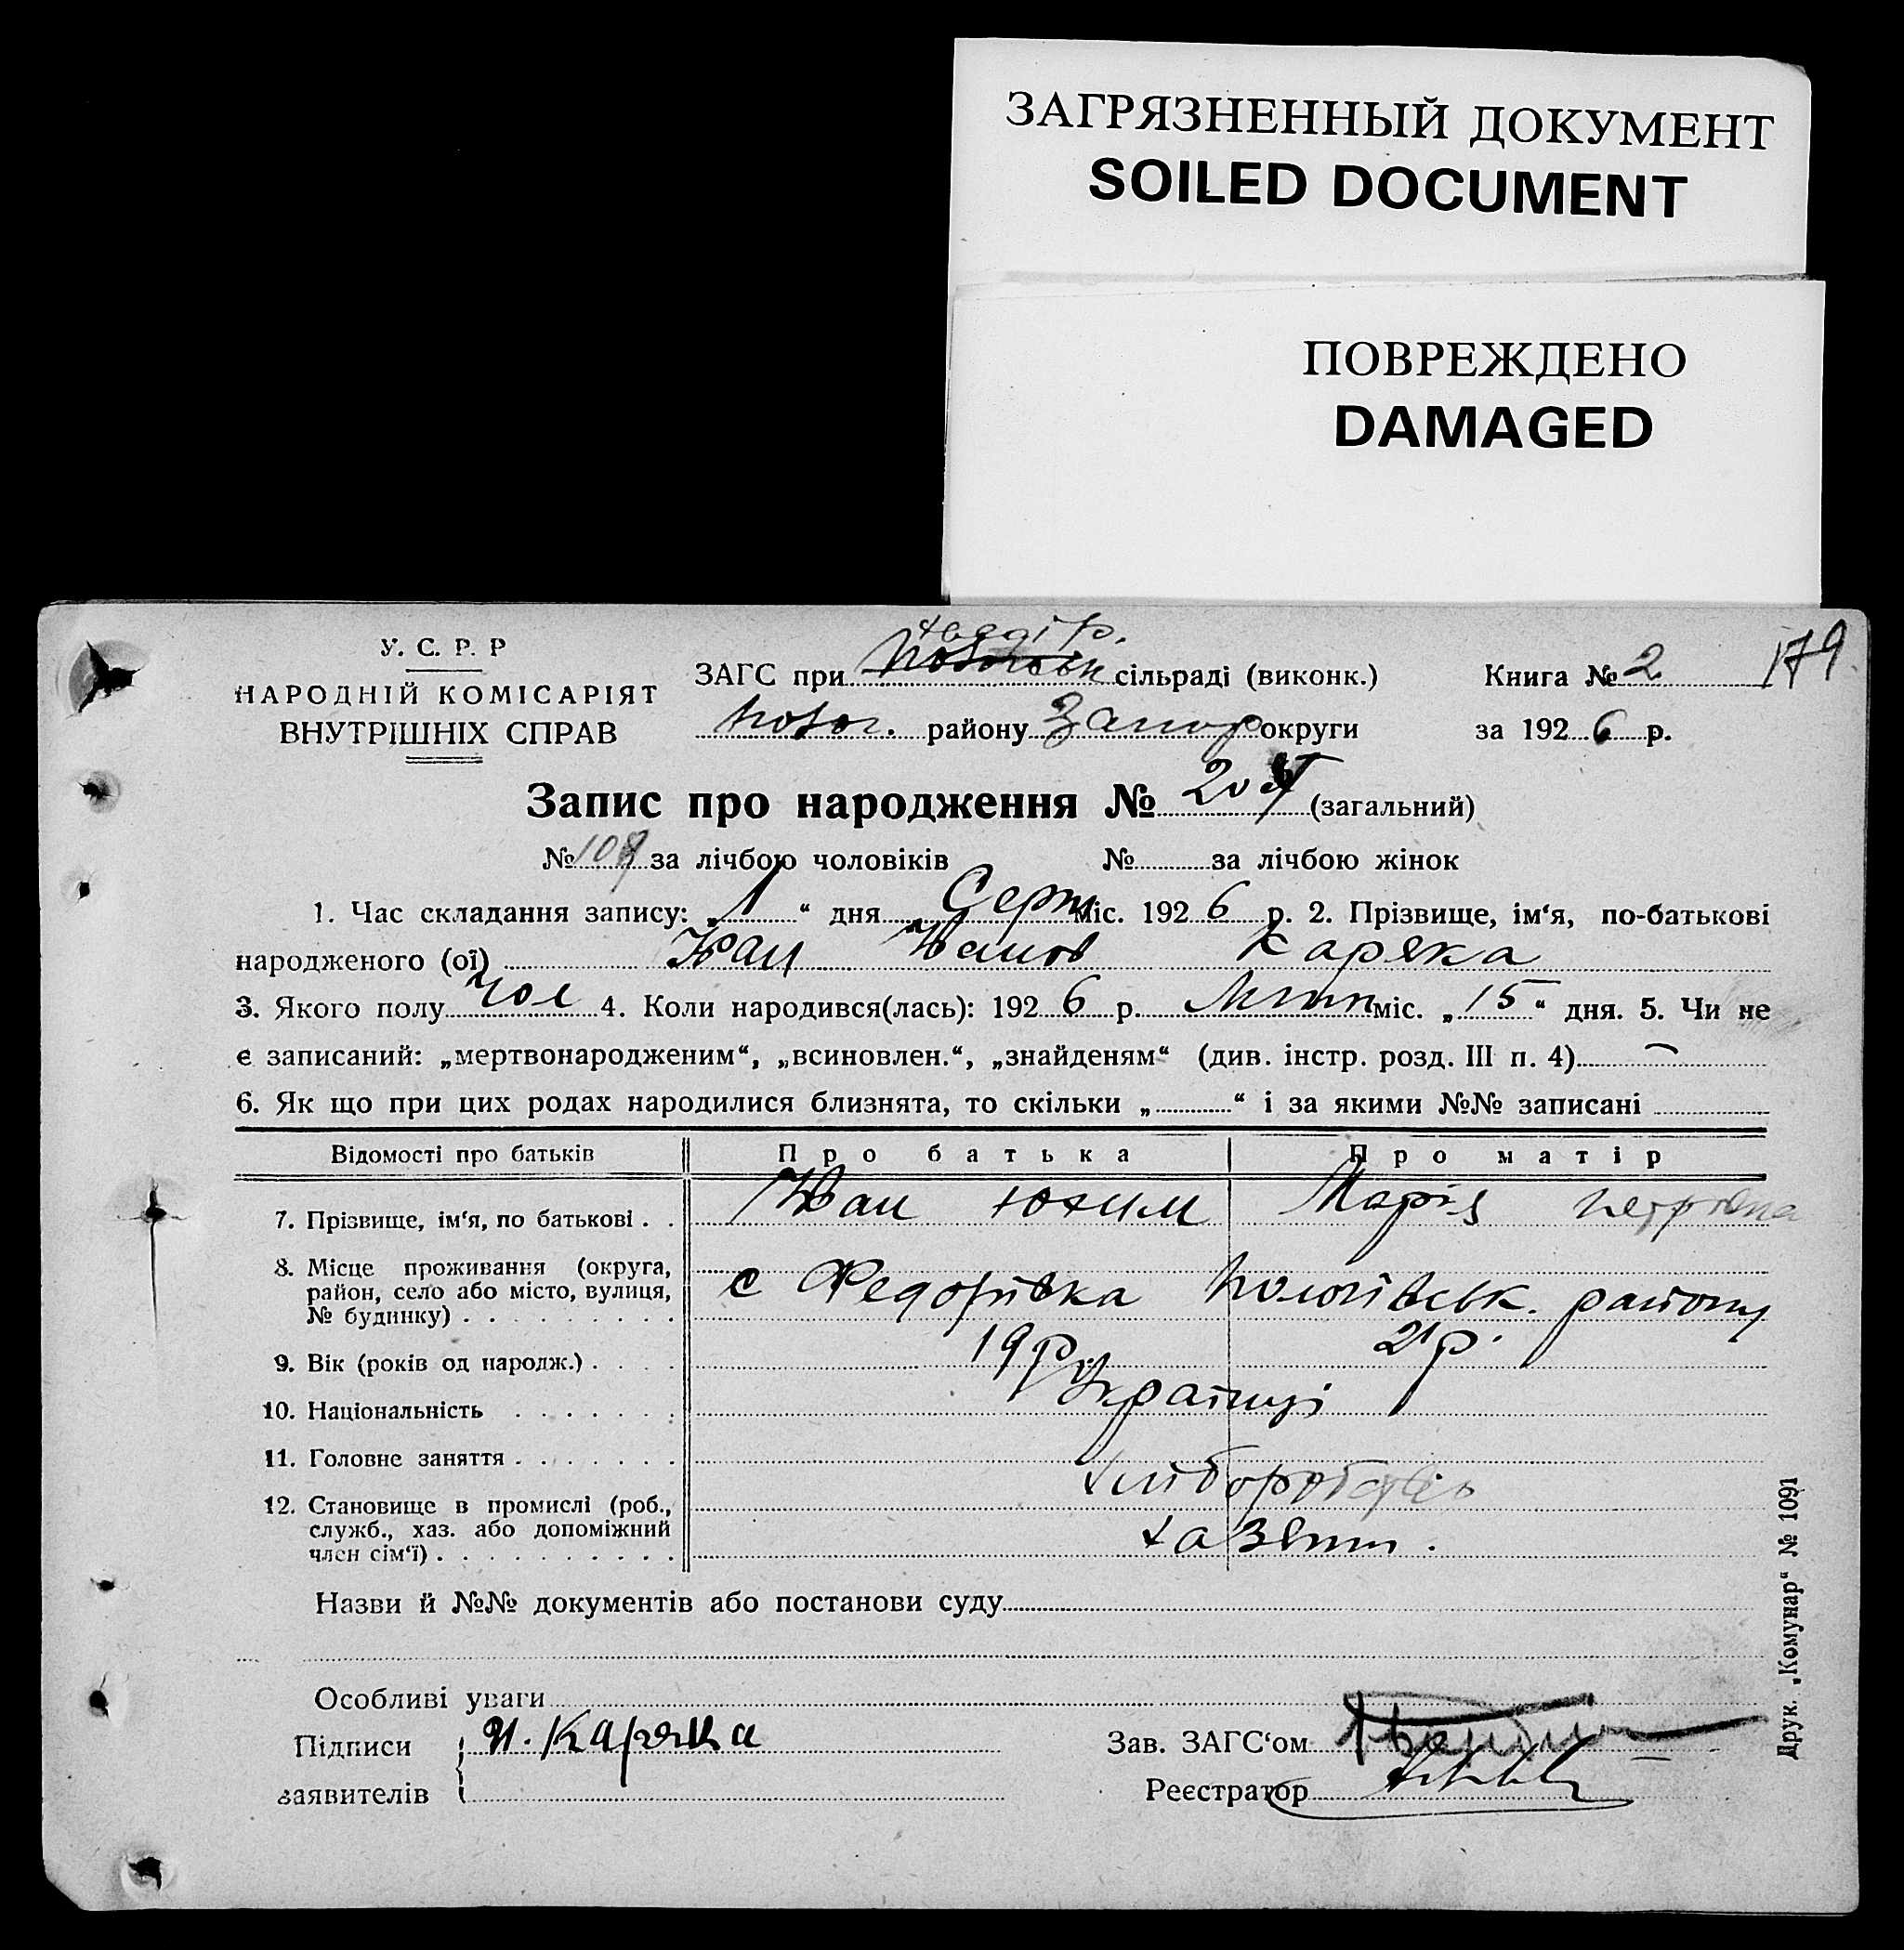 ЗАГРЯЗНЕННЫЙ ДОКУМЕНТ
SOILED DOCUMENT
ПОВРЕЖДЕНО
DAMAGED
179
У. С. Р. Р
НАРОДНІЙ КОМІСАРІЯТ
ВНУТРІШНІХ СПРАВ
ЗАГС при сільраді (виконк.)
району Запор округи
Книга № 2
за 1926 р.
Запис про народження № (загальний)
№ за лічбою чоловіків № за лічбою жінок
1. Час складання запису: „1“ дня Серп міс. 1926 р. 2. Прізвище, ім‘я, по-батькові
народженого (ої) Іван Іванов Каряка
3. Якого полу чол 4. Коли народився(лась): 1926 р. Липн міс. „15“ дня. 5. Чи не
є записаний: „мертвонародженим“, „всиновлен.“, „знайденям“ (див. інстр. розд. III п. 4)
6. Як що при цих родах народилися близнята, то скільки „ “ і за якими №№ записані
Відомості про батьків Про батька Про матір
7. Прізвище, ім‘я, по батькові . . Іван Юхим Марія Петрівна
8. Місце проживання (округа,
район, село або місто, вулиця,
№ будинку) . . . . . . . . . с Федорівка Пологівськ. району
9. Вік (років од народж.) . . . . 19р. 21р.
10. Національність . . . . . . . Українці
11. Головне заняття . . . . . . .
хліборобство
12. Становище в промислі (роб.,
служб., хаз. або допоміжний
член сім‘ї) . . . . . . . . . .
Назви й №№ документів або постанови суду
Особливі уваги
Підписи И. Каряка
заявителів
Зав. ЗАГС‘ом
Реєстратор
Друк. „Комунар“ № 1091